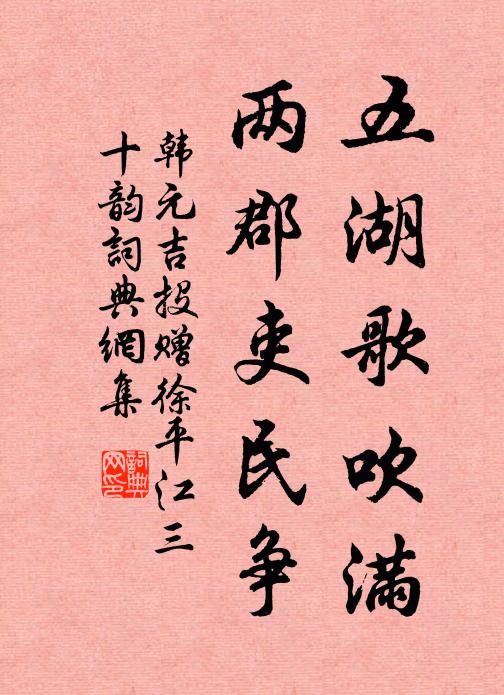 五湖歌吹满
两郡吏民争
韩元吉投赠徐平江三
十韵詞典網集
詞典
网印